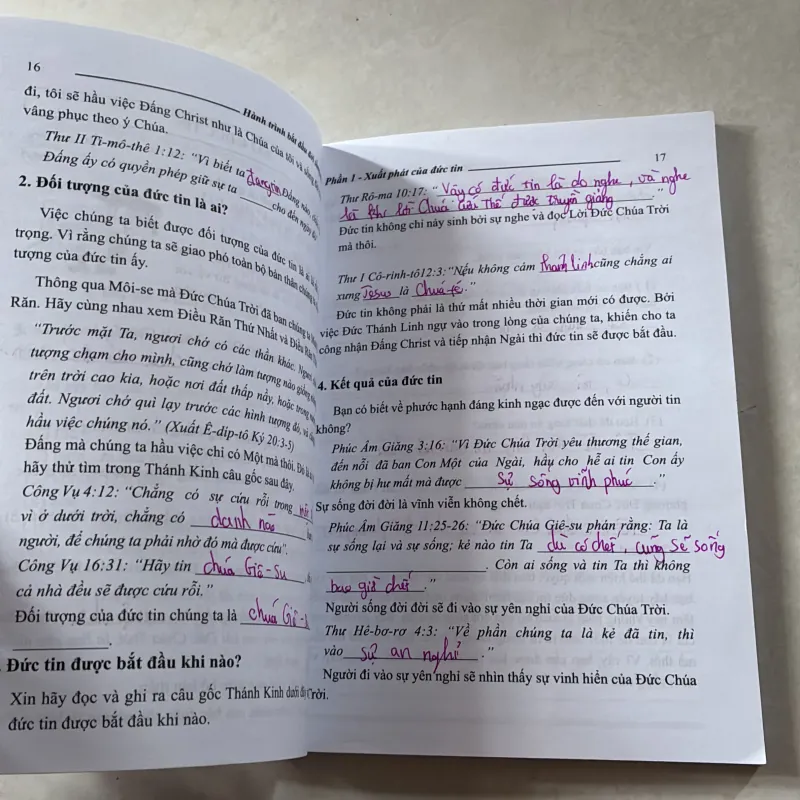 16
Hành trình bắt đầu
đi, tôi sẽ hầu việc Đấng Christ như là Chúa của tôi và
vâng phục theo ý Chúa.
Thư II Ti-mô-thê 1:12: “Vì biết ta
Đấng ấy có quyền phép giữ sự ta ______ cho đến ngày
2. Đối tượng của đức tin là ai?
Việc chúng ta biết được đối tượng của đức tin là ai là
trọng. Vì rằng chúng ta sẽ giao phó toàn bộ bản thân chúng
tượng của đức tin ấy.
Thông qua Môi-se mà Đức Chúa Trời đã ban chúng ta
Răn. Hãy cùng nhau xem Điều Răn Thứ Nhất và Điều Răn
“Trước mặt Ta, ngươi chớ có các thần khác. Ngươi
tượng chạm cho mình, cũng chớ làm tượng nào giống
trên trời cao kia, hoặc nơi đất thấp nầy, hoặc trong
đất. Ngươi chớ quì lạy trước các hình tượng đó, và
hầu việc chúng nó.” (Xuất Ê-díp-tô Ký 20:3-5)
Đấng mà chúng ta hầu việc chỉ có Một mà thôi. Đó là
hãy thử tìm trong Thánh Kinh câu gốc sau đây.
Công Vụ 4:12: “Chẳng có sự cứu rỗi trong
vì ở dưới trời, chẳng có danh nào
người, để chúng ta phải nhờ đó mà được cứu”.
Công Vụ 16:31: “Hãy tin chúa Giê-su
cả nhà đều sẽ được cứu rỗi.”
Đối tượng của đức tin chúng ta là chúa Giê-
______.
Đức tin được bắt đầu khi nào?
Xin hãy đọc và ghi ra câu gốc Thánh Kinh dưới đây
đức tin được bắt đầu khi nào.
Phần 1 - Xuất phát của đức tin
17
Thư Rô-ma 10:17: “Vậy có đức tin là do nghe, và nghe
là khi lời Chúa cứu thế được truyền giảng.”
Đức tin không chỉ nảy sinh bởi sự nghe và đọc Lời Đức Chúa Trời
mà thôi.
Thư 1 Cô-rinh-tô12:3:“Nếu không cảm thánh linh cũng chẳng ai
xưng Jesus là Chúa tể.”
Đức tin không phải là thứ mất nhiều thời gian mới có được. Bởi
việc Đức Thánh Linh ngự vào trong lòng của chúng ta, khiến cho ta
công nhận Đấng Christ và tiếp nhận Ngài thì đức tin sẽ được bắt đầu.
4. Kết quả của đức tin
Bạn có biết về phước hạnh đáng kinh ngạc được đến với người tin
không?
Phúc Âm Giăng 3:16: “Vì Đức Chúa Trời yêu thương thế gian,
đến nỗi đã ban Con Một của Ngài, hầu cho hễ ai tin Con ấy
không bị hư mất mà được sự sống vĩnh phúc.”
Sự sống đời đời là vĩnh viễn không chết.
Phúc Âm Giăng 11:25-26: “Đức Chúa Giê-su phán rằng: Ta là
sự sống lại và sự sống; kẻ nào tin Ta dù có chết, cũng sẽ sống
______. Còn ai sống và tin Ta thì không
bao giờ chết.”
Người sống đời đời sẽ đi vào sự yên nghỉ của Đức Chúa Trời.
Thư Hê-bơ-rơ 4:3: “Về phần chúng ta là kẻ đã tin, thì
vào sự an nghỉ.”
Người đi vào sự yên nghỉ sẽ nhìn thấy sự vinh hiển của Đức Chúa
Trời.